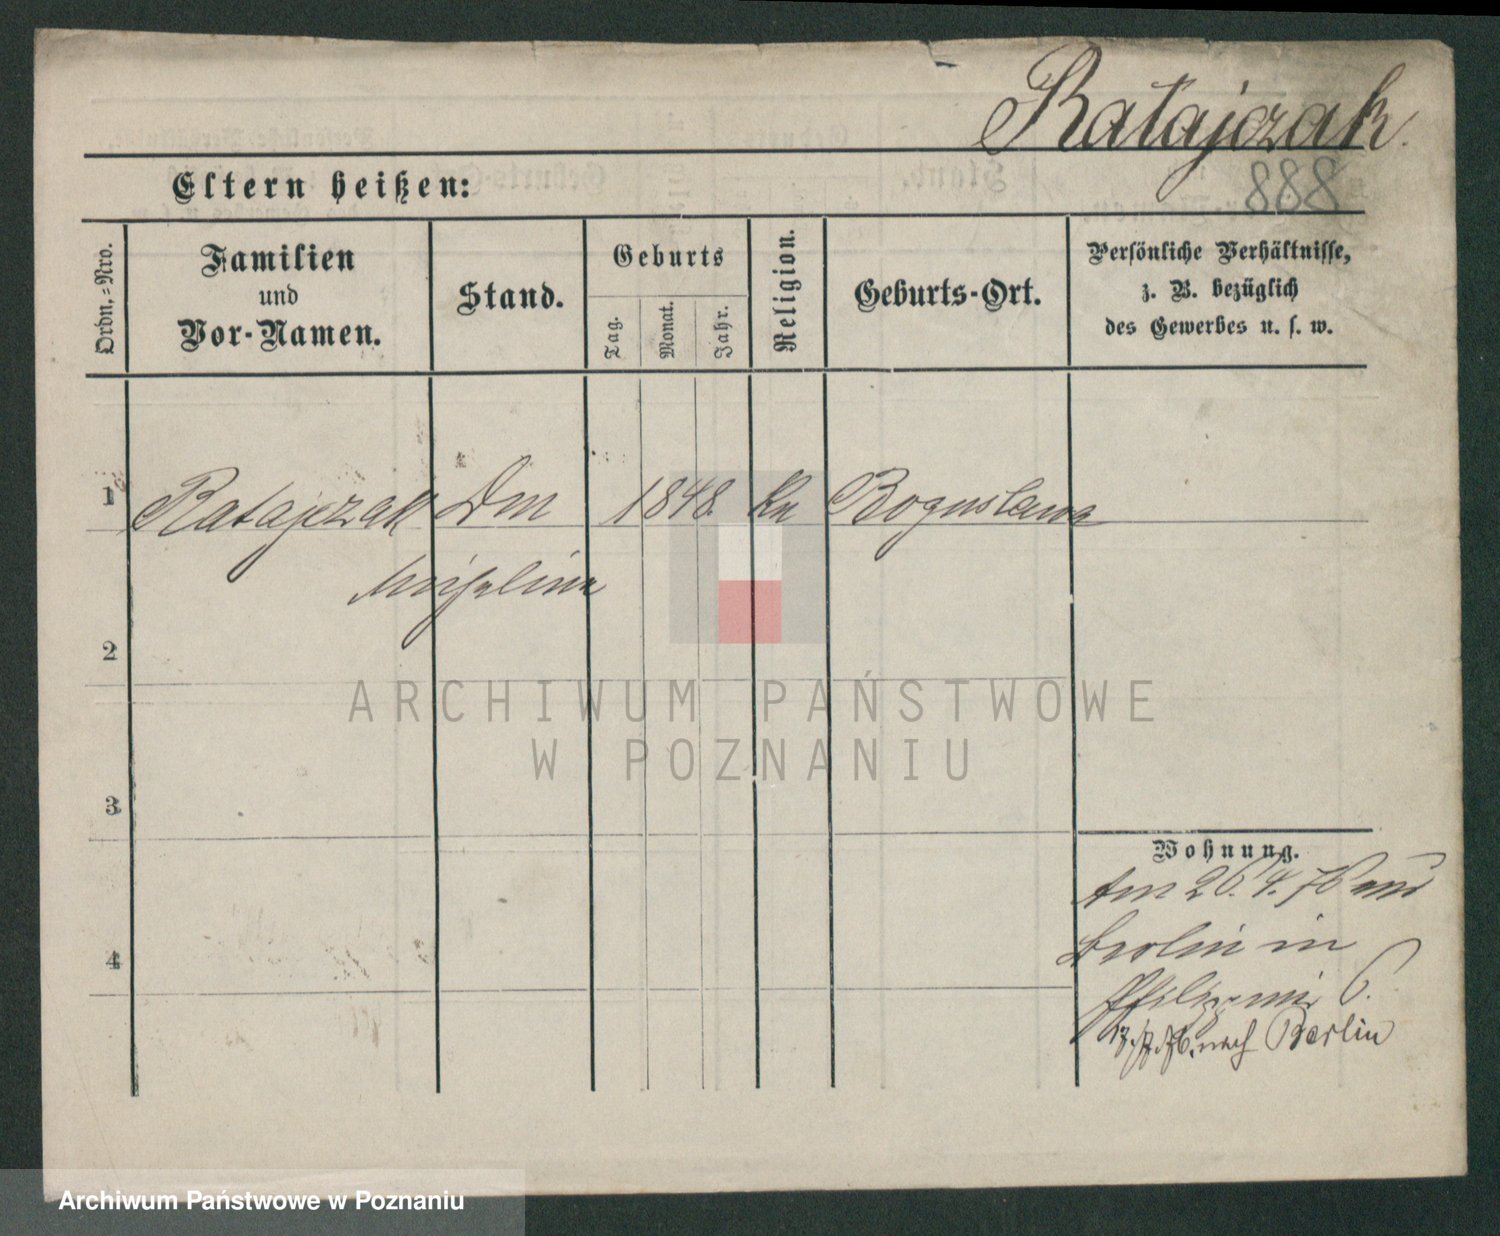 Ratajczak.
888
Eltern heißen:
Ordn.-Nro.
Familien
und
Vor-Namen.
Stand.
Geburts
Tag.
Monat.
Jahr.
Religion.
Geburts-Ort.
Persönliche Verhältnisse,
z. B. bezüglich
des Gewerbes u. s. w.
1 Ratajczak Dm 1848 Ka Boguslawa
2
3
4
Wohnung.
Am 26.4.76 aus
Berlin in
6.
nach Berlin
ARCHIWUM PAŃSTWOWE
W POZNANIU
Archiwum Państwowe w Poznaniu